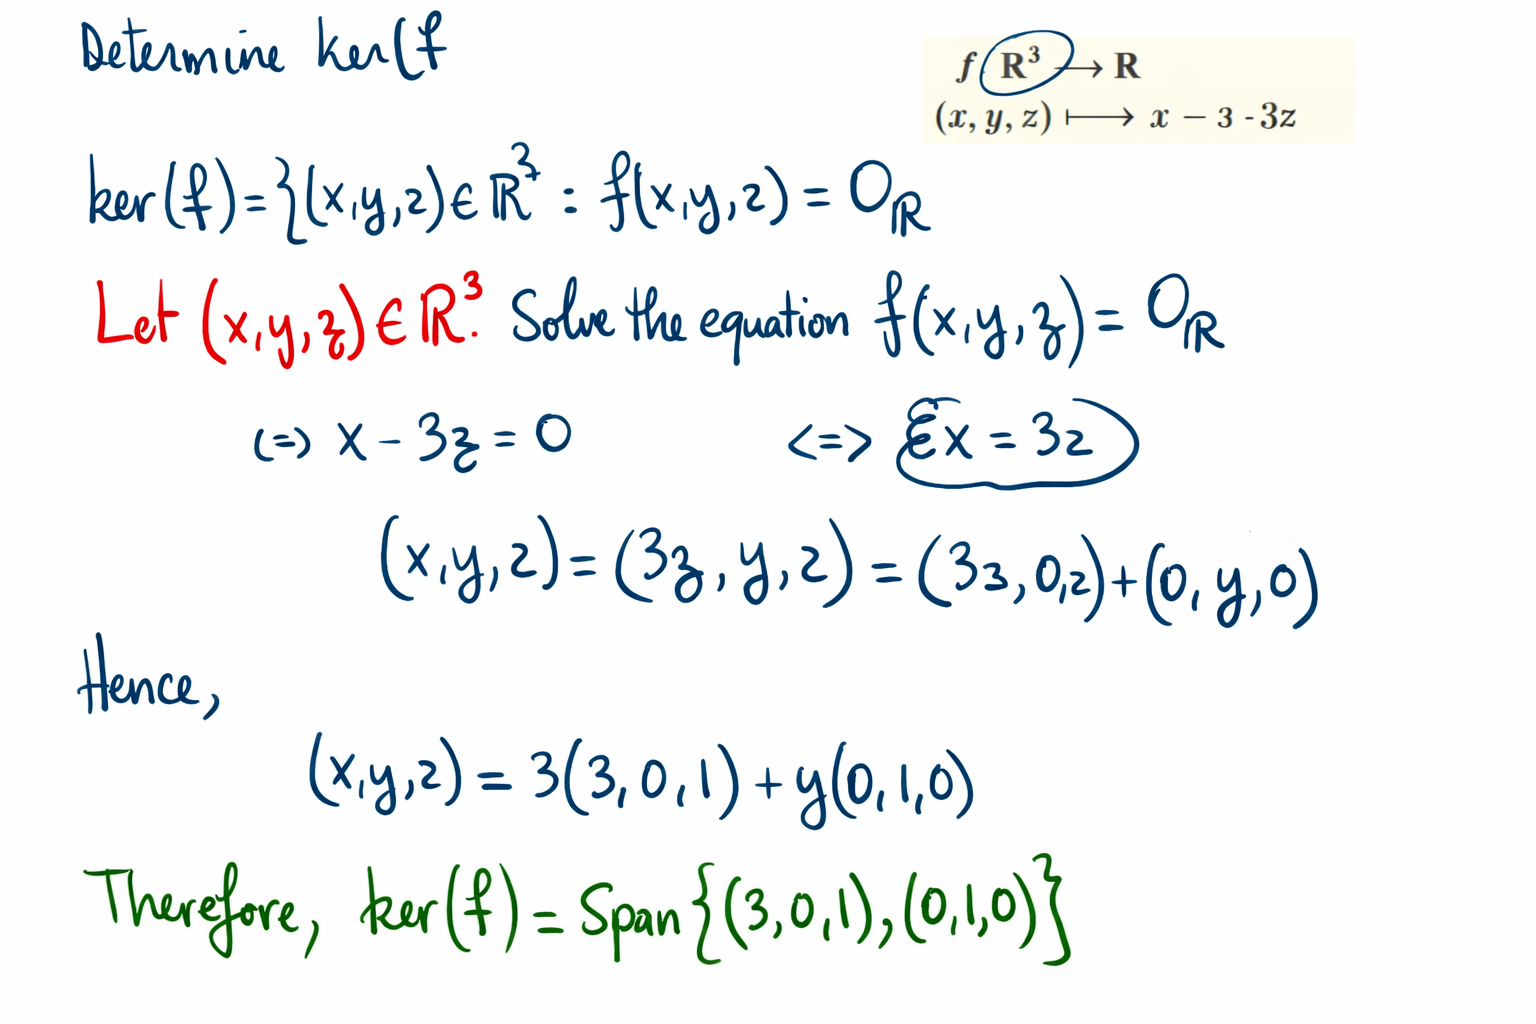 Determine ker(f
f R³ ⟶ R
(x, y, z) ⟼ x − 3 - 3z
ker(f) = {(x,y,z) ∈ ℝ³ : f(x,y,z) = 0_ℝ
Let (x,y,z) ∈ ℝ³. Solve the equation f(x,y,z) = 0_ℝ
(=) x - 3z = 0 <=> x = 3z
(x,y,z) = (3z, y, z) = (3z, 0, z) + (0, y, 0)
Hence,
(x,y,z) = 3(3, 0, 1) + y(0, 1, 0)
Therefore, ker(f) = Span{(3,0,1), (0,1,0)}